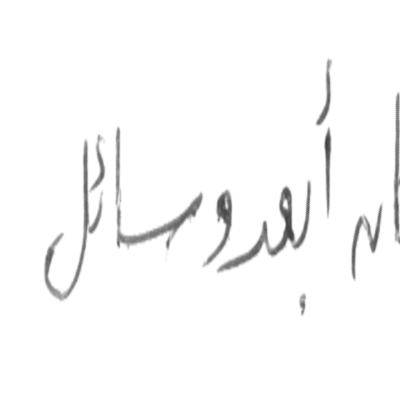 أبعد وسائل